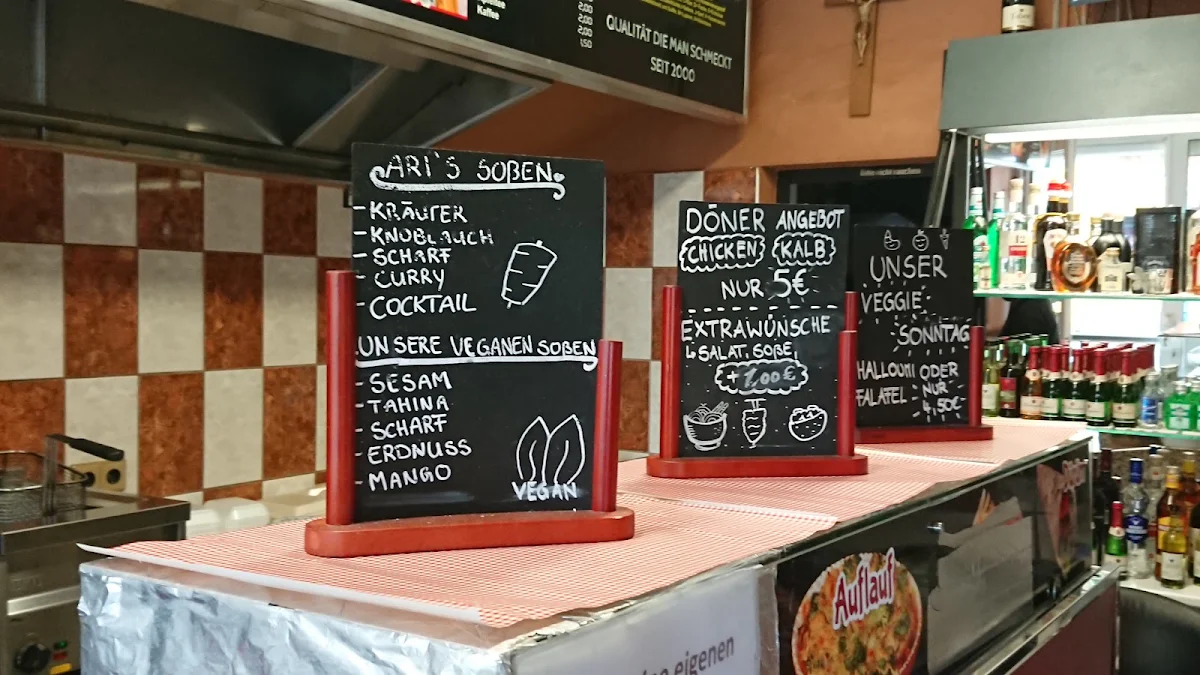 Kaffee
2,00
2,00
2,00
1,50
QUALITÄT DIE MAN SCHMECKT
SEIT 2000
ARI'S SOßEN
- KRÄUTER
- KNOBLAUCH
- SCHARF
- CURRY
- COCKTAIL
UNSERE VEGANEN SOßEN
- SESAM
- TAHINA
- SCHARF
- ERDNUSS
- MANGO
VEGAN
DÖNER ANGEBOT
CHICKEN KALB
NUR 5€
EXTRAWÜNSCHE
↳ SALAT, SOßE,
+ 1,00€
UNSER
VEGGIE
SONNTAG
HALLOUMI ODER
FALAFEL NUR
4,50€
Bitte nicht rauchen
Auflauf
eigenen